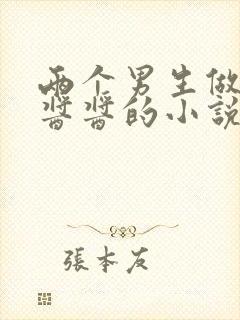 两个男生做
酱酱的小说
張本友